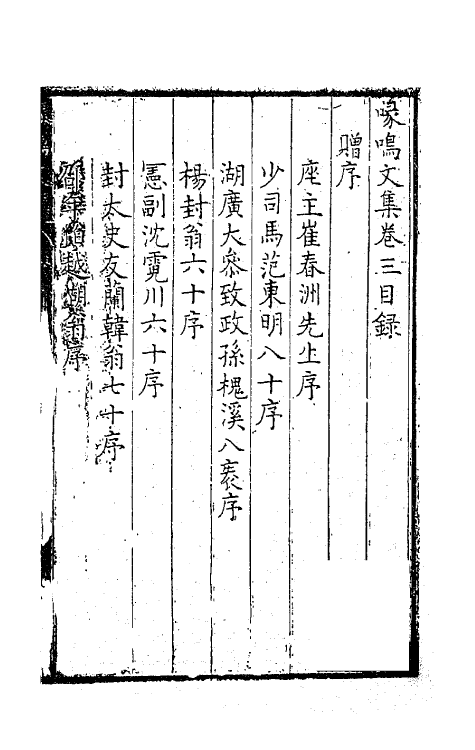 喙鳴文集卷三目録
贈序
座主崔春洲先生序
少司馬范東明八十序
湖廣大參致政孫槐溪八袠序
楊封翁六十序
憲副沈霓川六十序
封太史友蘭韓翁七十序
趙湖 序